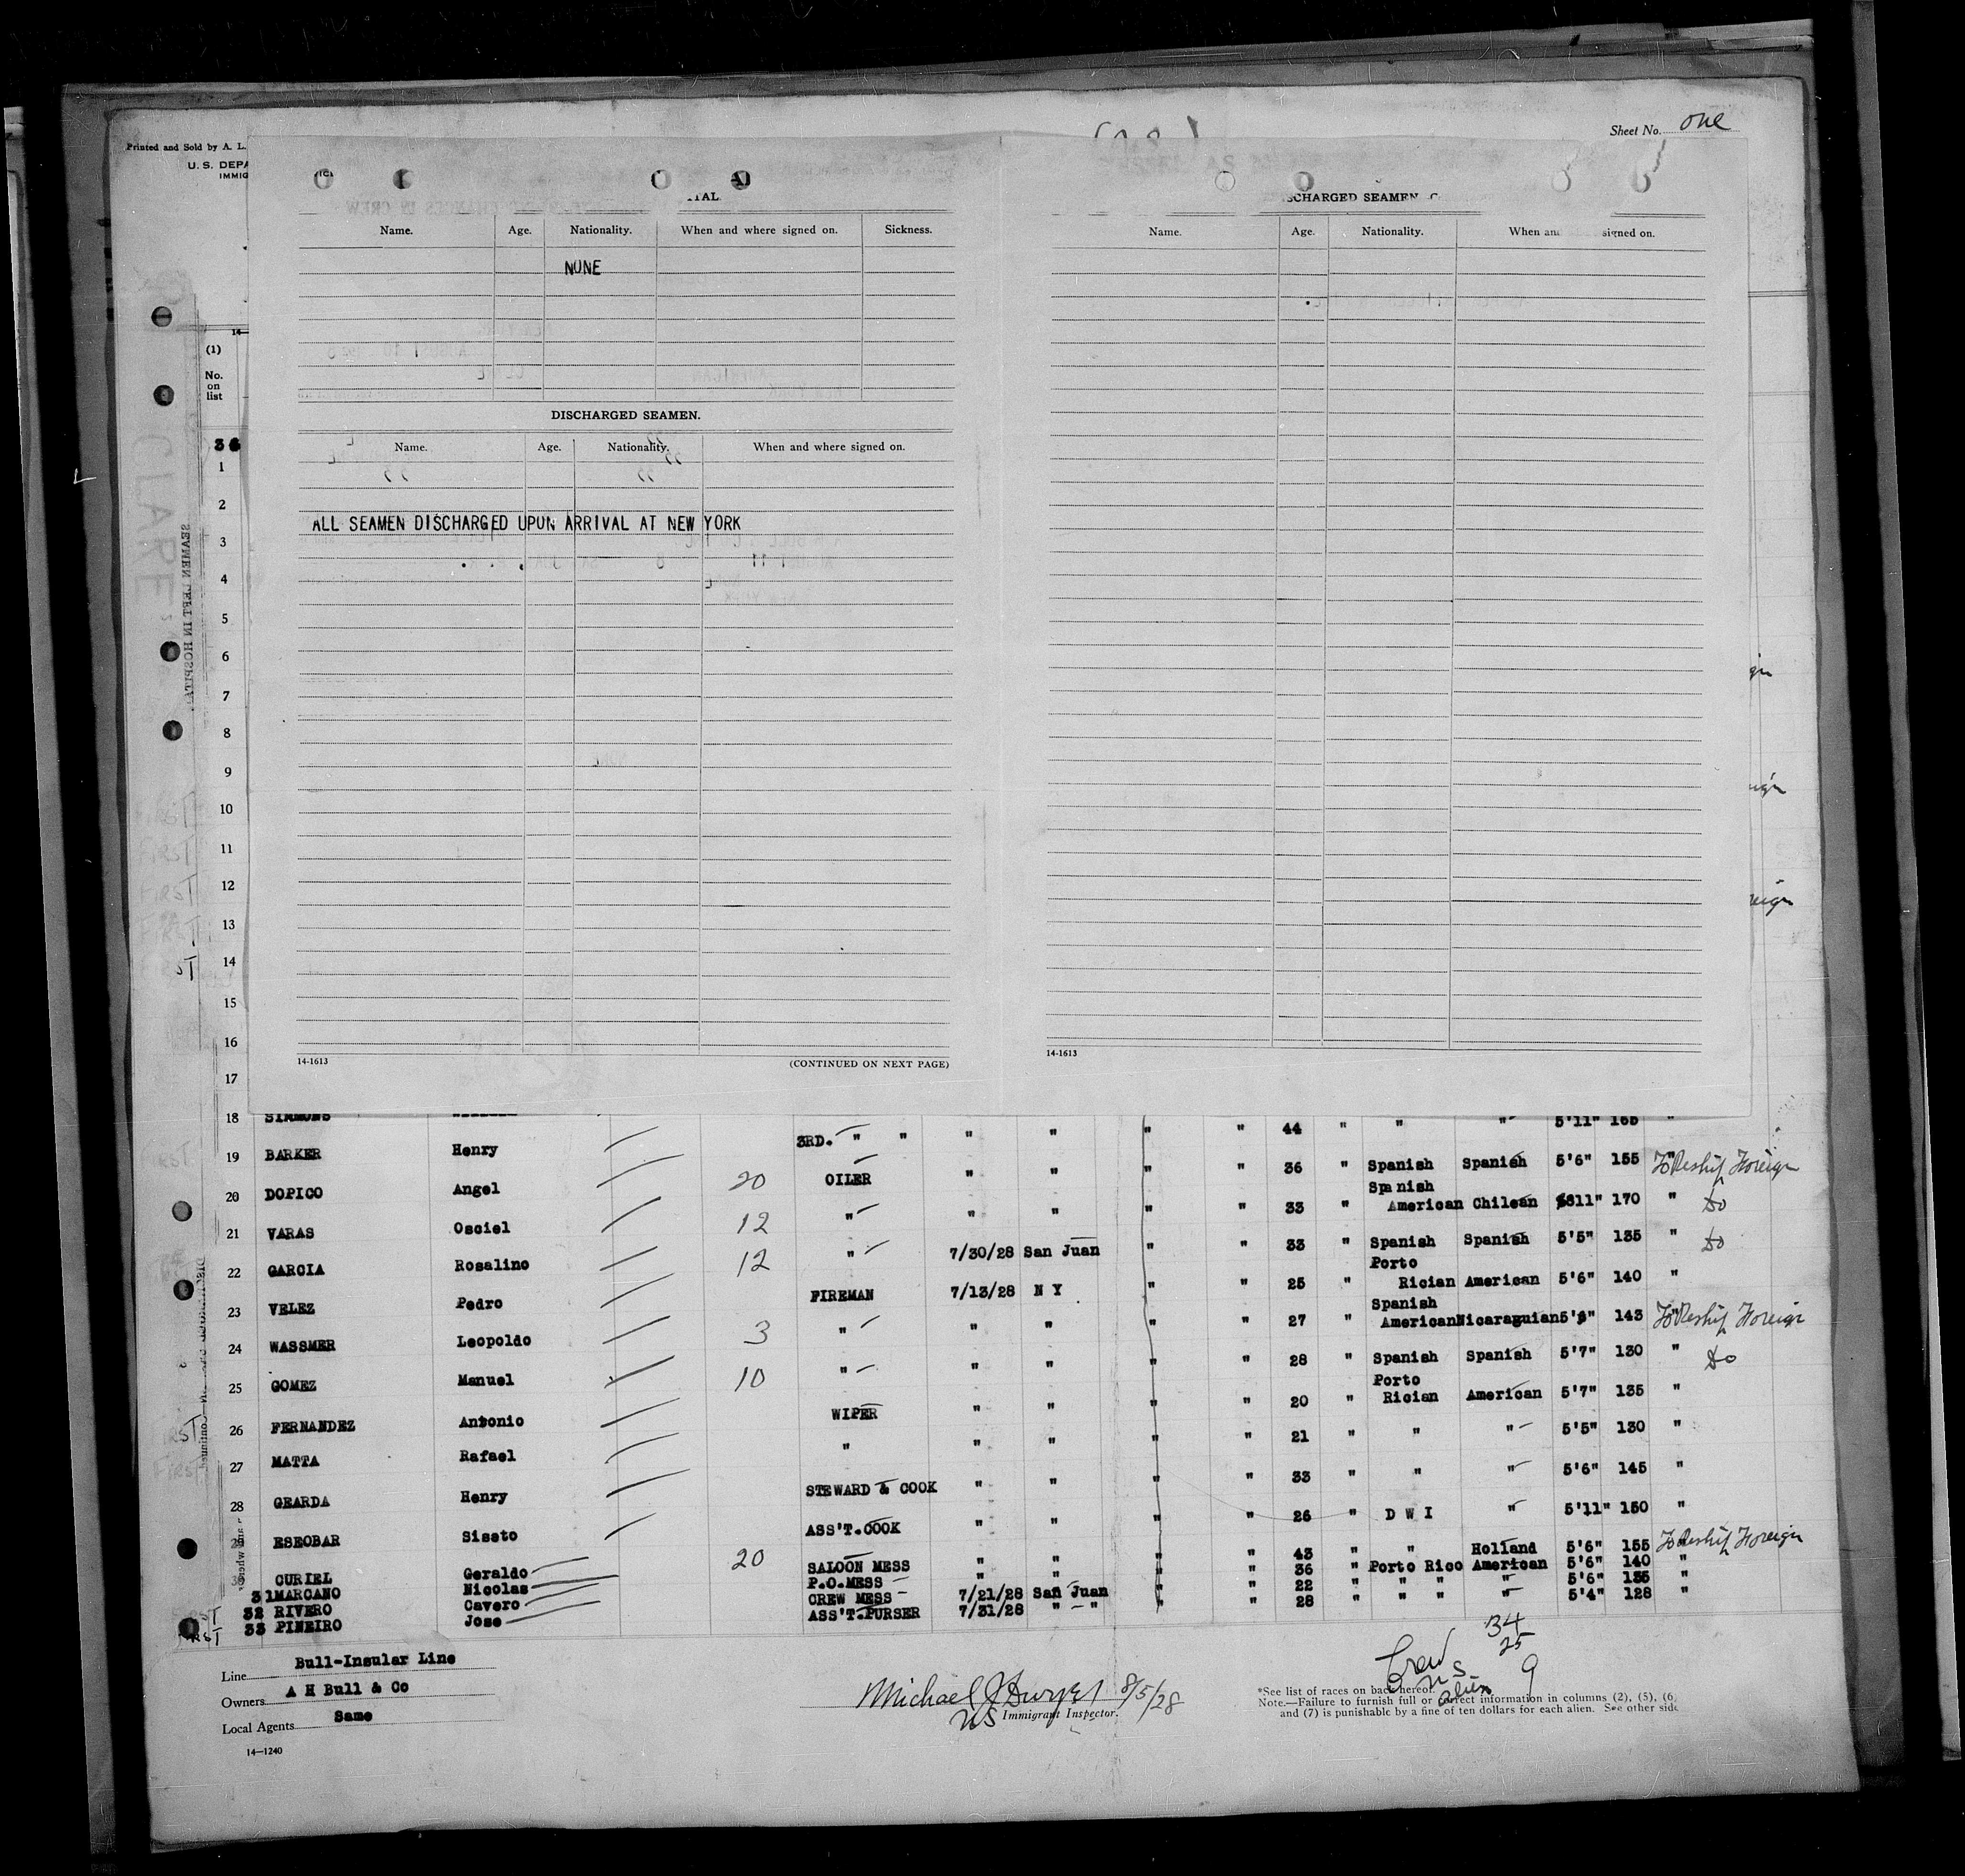 Sheet No. one
Printed and Sold by A. L.
U. S. DEPA
IMMIG
SCHARGED SEAMEN
Name. Age. Nationality. When and where signed on. Sickness.
NONE
DISCHARGED SEAMEN.
Name. Age. Nationality. When and where signed on.
ALL SEAMEN DISCHARGED UPON ARRIVAL AT NEW YORK
14-1613 (CONTINUED ON NEXT PAGE)
Name. Age. Nationality. When an signed on.
14-1613
(1)
No.
on
list
1
2
3
4
5
6
7
8
9
10
11
12
13
14
15
16
17
18 SIMMONS 44 " " " 5'11" 165 "
19 BARKER Henry 3RD. " " " " " " 36 " Spanish Spanish 5'6" 155 " To Reship Foreign
20 DOPICO Angel 20 OILER " " " " 33 " Spanish American Chilean 11" 170 " do
21 VARAS Osciel 12 " " " " " 33 " Spanish Spanish 5'5" 135 " do
22 GARCIA Rosalino 12 " 7/30/28 San Juan " " 25 " Porto Rician American 5'6" 140 "
23 VELEZ Pedro FIREMAN 7/13/28 N Y " " 27 " Spanish American Nicaraguian 5' 143 " To Reship Foreign
24 WASSMER Leopoldo 3 " " " " " 28 " Spanish Spanish 5'7" 130 " do
25 GOMEZ Manuel 10 " " " " " 20 " Porto Rician American 5'7" 135 "
26 FERNANDEZ Antonio WIPER " " " " 21 " " " 5'5" 130 "
27 MATTA Rafael " " " " " 33 " " " 5'6" 145 "
28 GEARDA Henry STEWARD & COOK " " " " 26 " D W I " 5'11" 150 "
29 ESEOBAR Sisato ASS'T. COOK " " " " 43 " " Holland 5'6" 155 To Reship Foreign
CURIEL Geraldo 20 SALOON MESS " " " " 36 " Porto Rico American 5'6" 140 "
31 MARCANO Nicolas P.O. MESS " " " " 22 " " " " 5'6" 135 "
32 RIVERO Cavero CREW MESS 7/21/28 San Juan " " 28 " " " " 5'4" 128 "
33 PINEIRO Jose ASS'T. PURSER 7/31/28 " "
Line Bull-Insular Line
Owners A H Bull & Co
Local Agents Same
14—1240
8/5/28
US Immigrant Inspector.
Crew 34
US 25
alien 9
*See list of races on back hereof.
Note.—Failure to furnish full or correct information in columns (2), (5), (6,
and (7) is punishable by a fine of ten dollars for each alien. See other side